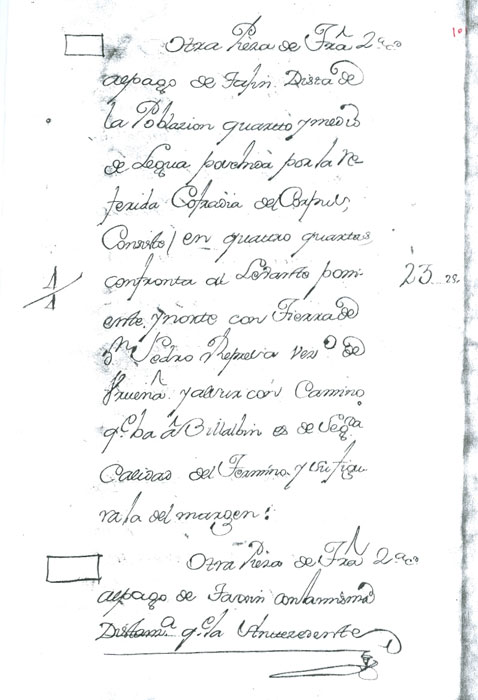 10
Otra Pieza de Trã 2.ª
al pago de Dista de
la Poblazion quarto y medio
de Legua por la Re
ferida Cofradia del Corpus,
Consiste en quatro quartas
confronta al Levante poni-
ente, y norte con Tierra de
Dn Pedro Vezo de
y al sur con Camino
q.e ba â Villalbin es de Seg.da
Calidad del Termino y su figu-
ra la del margen:
1/1
23
Otra Pieza de Trã 2.ª
al pago de con la misma
Distanz.ª q.e la Antezedente